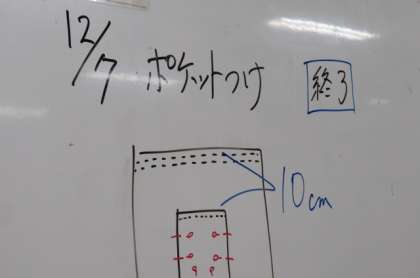 12/7 ポケットつけ 終了
10cm